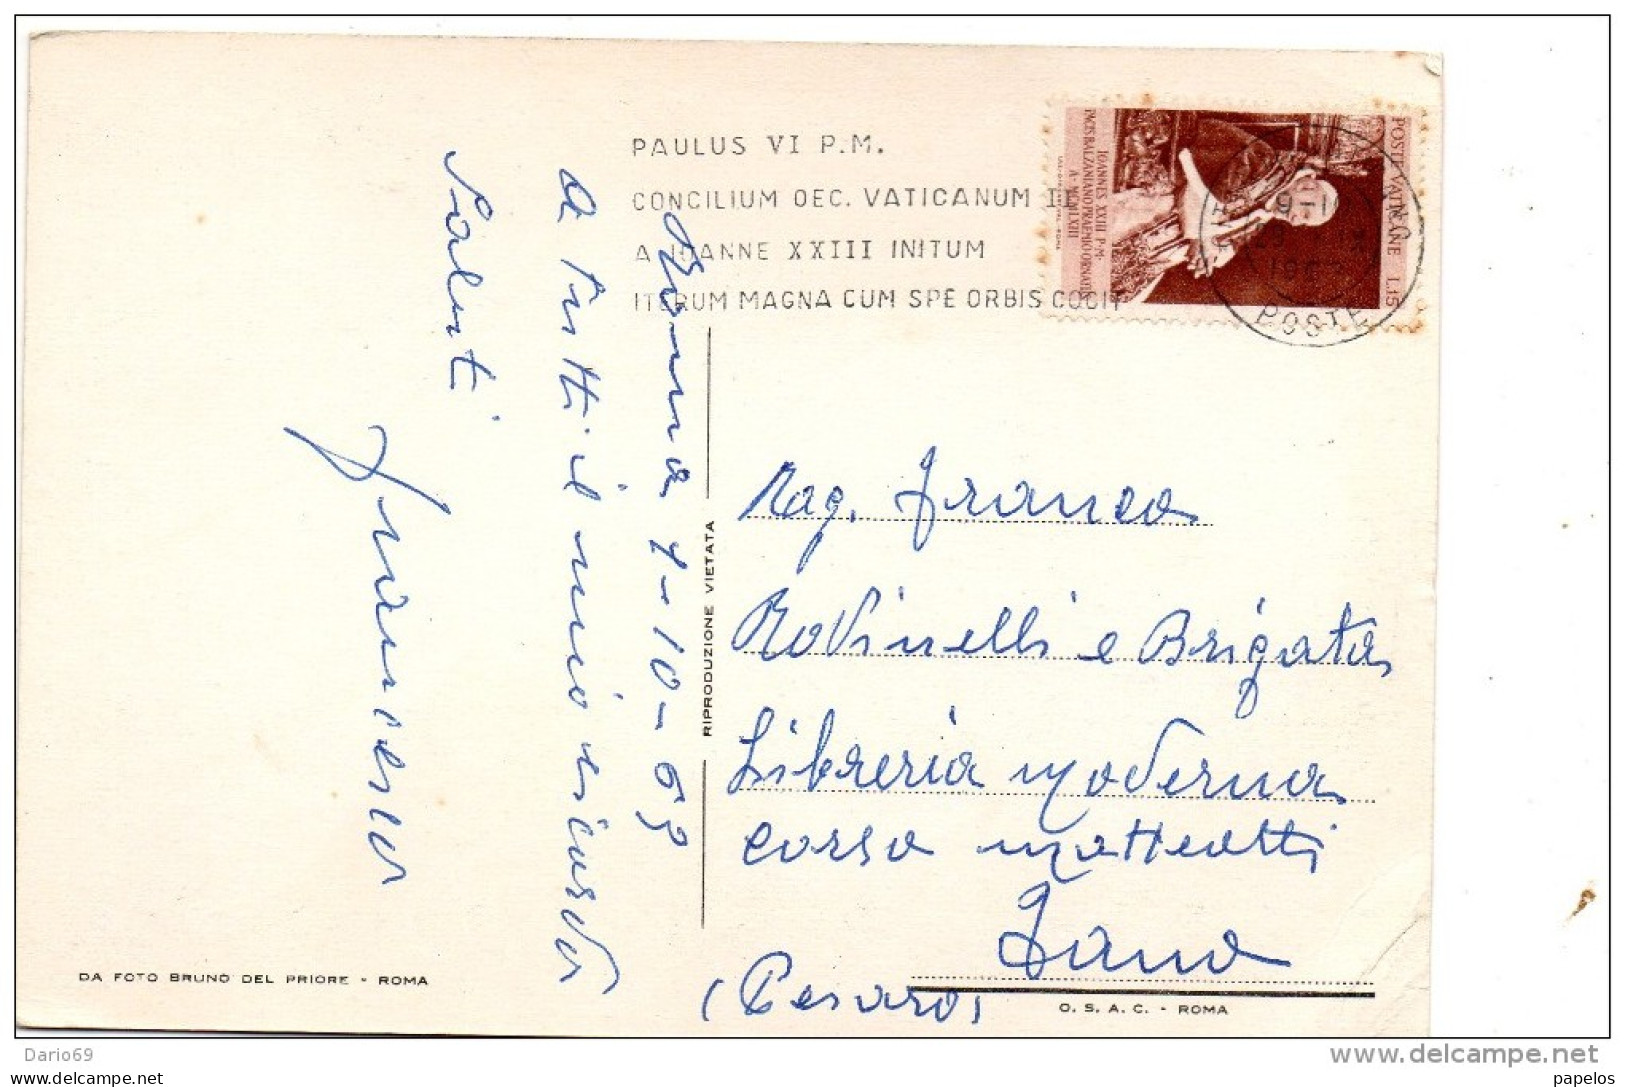 PAULUS VI P.M.
CONCILIUM OEC. VATICANUM II
A IOANNE XXIII INITUM
ITERUM MAGNA CUM SPE ORBIS COGIT
POSTE VATICANE L.15
IOANNES XXIII P.M.
PACIS BALZANIANO PRAEMIO ORNATUS
A. MCMLXIII
POSTE
Roma 4-10-63
A tutti il mio ricordo
Saluti
Francesco
Rag. Franco
Rovinelli e Brigata
Libreria Moderna
corso Matteotti
Fano
(Pesaro)
RIPRODUZIONE VIETATA
DA FOTO BRUNO DEL PRIORE - ROMA
O. S. A. C. - ROMA
Dario69
www.delcampe.net
papelos